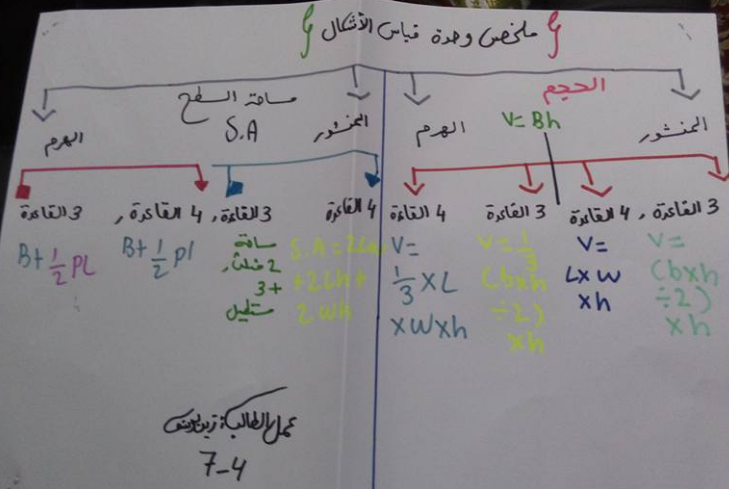 ملخص وحدة قياس الأشكال
الحجم
V= Bh
المنشور
الهرم
3 القاعدة
4 القاعدة
3 القاعدة
4 القاعدة
V=
(bxh
÷2)
xh
V=
Lxw
xh
V= 1/3
(bxh
÷2)
xh
V=
1/3 xL
xwxh
مساحة السطح
S.A
المنشور
الهرم
4 القاعدة
3 القاعدة
4 القاعدة
3 القاعدة
+2Lh+
2wh
مساحة
2 مثلث
+3
مستطيل
B+ 1/2 Pl
B+ 1/2 PL
عمل الطالبة:
7-4